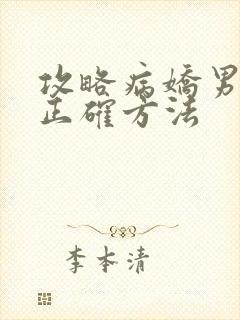 攻略病嬌男
正確方法
李本清